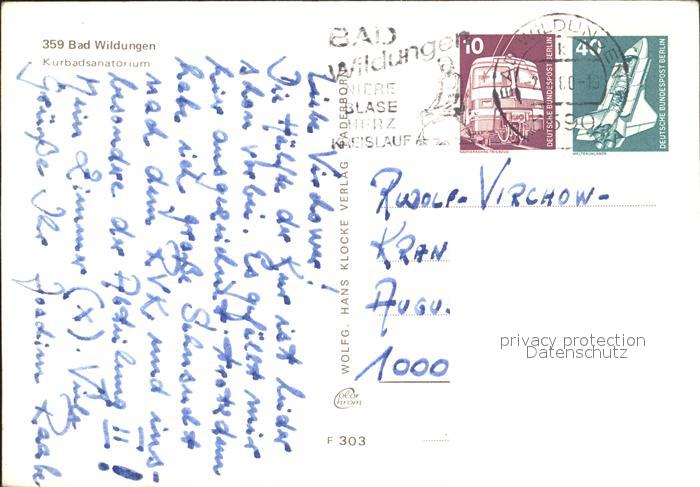 359 Bad Wildungen
Kurbadsanatorium
BAD
Wildungen
NIERE
BLASE
HERZ
KREISLAUF
10
DEUTSCHE BUNDESPOST BERLIN
40
DEUTSCHE BUNDESPOST BERLIN
WELTRAUMLABOR
BAD WILDUNGEN
3590
Liebe Virchower!
Die Hälfte der Kur ist leider
schon vorbei. Es gefällt mir
hier ausgezeichnet. Trotzdem
habe ich große Sehnsucht
nach dem RVK und ins-
besondre der Abteilung II!
Mein Zimmer (X). Viele
Grüße Ihr Joachim Raabe
WOLFG. HANS KLOCKE VERLAG PADERBORN
Color
chrom
F 303
RUDOLF-VIRCHOW-
KRAN
AUGU
1000
privacy protection
Datenschutz